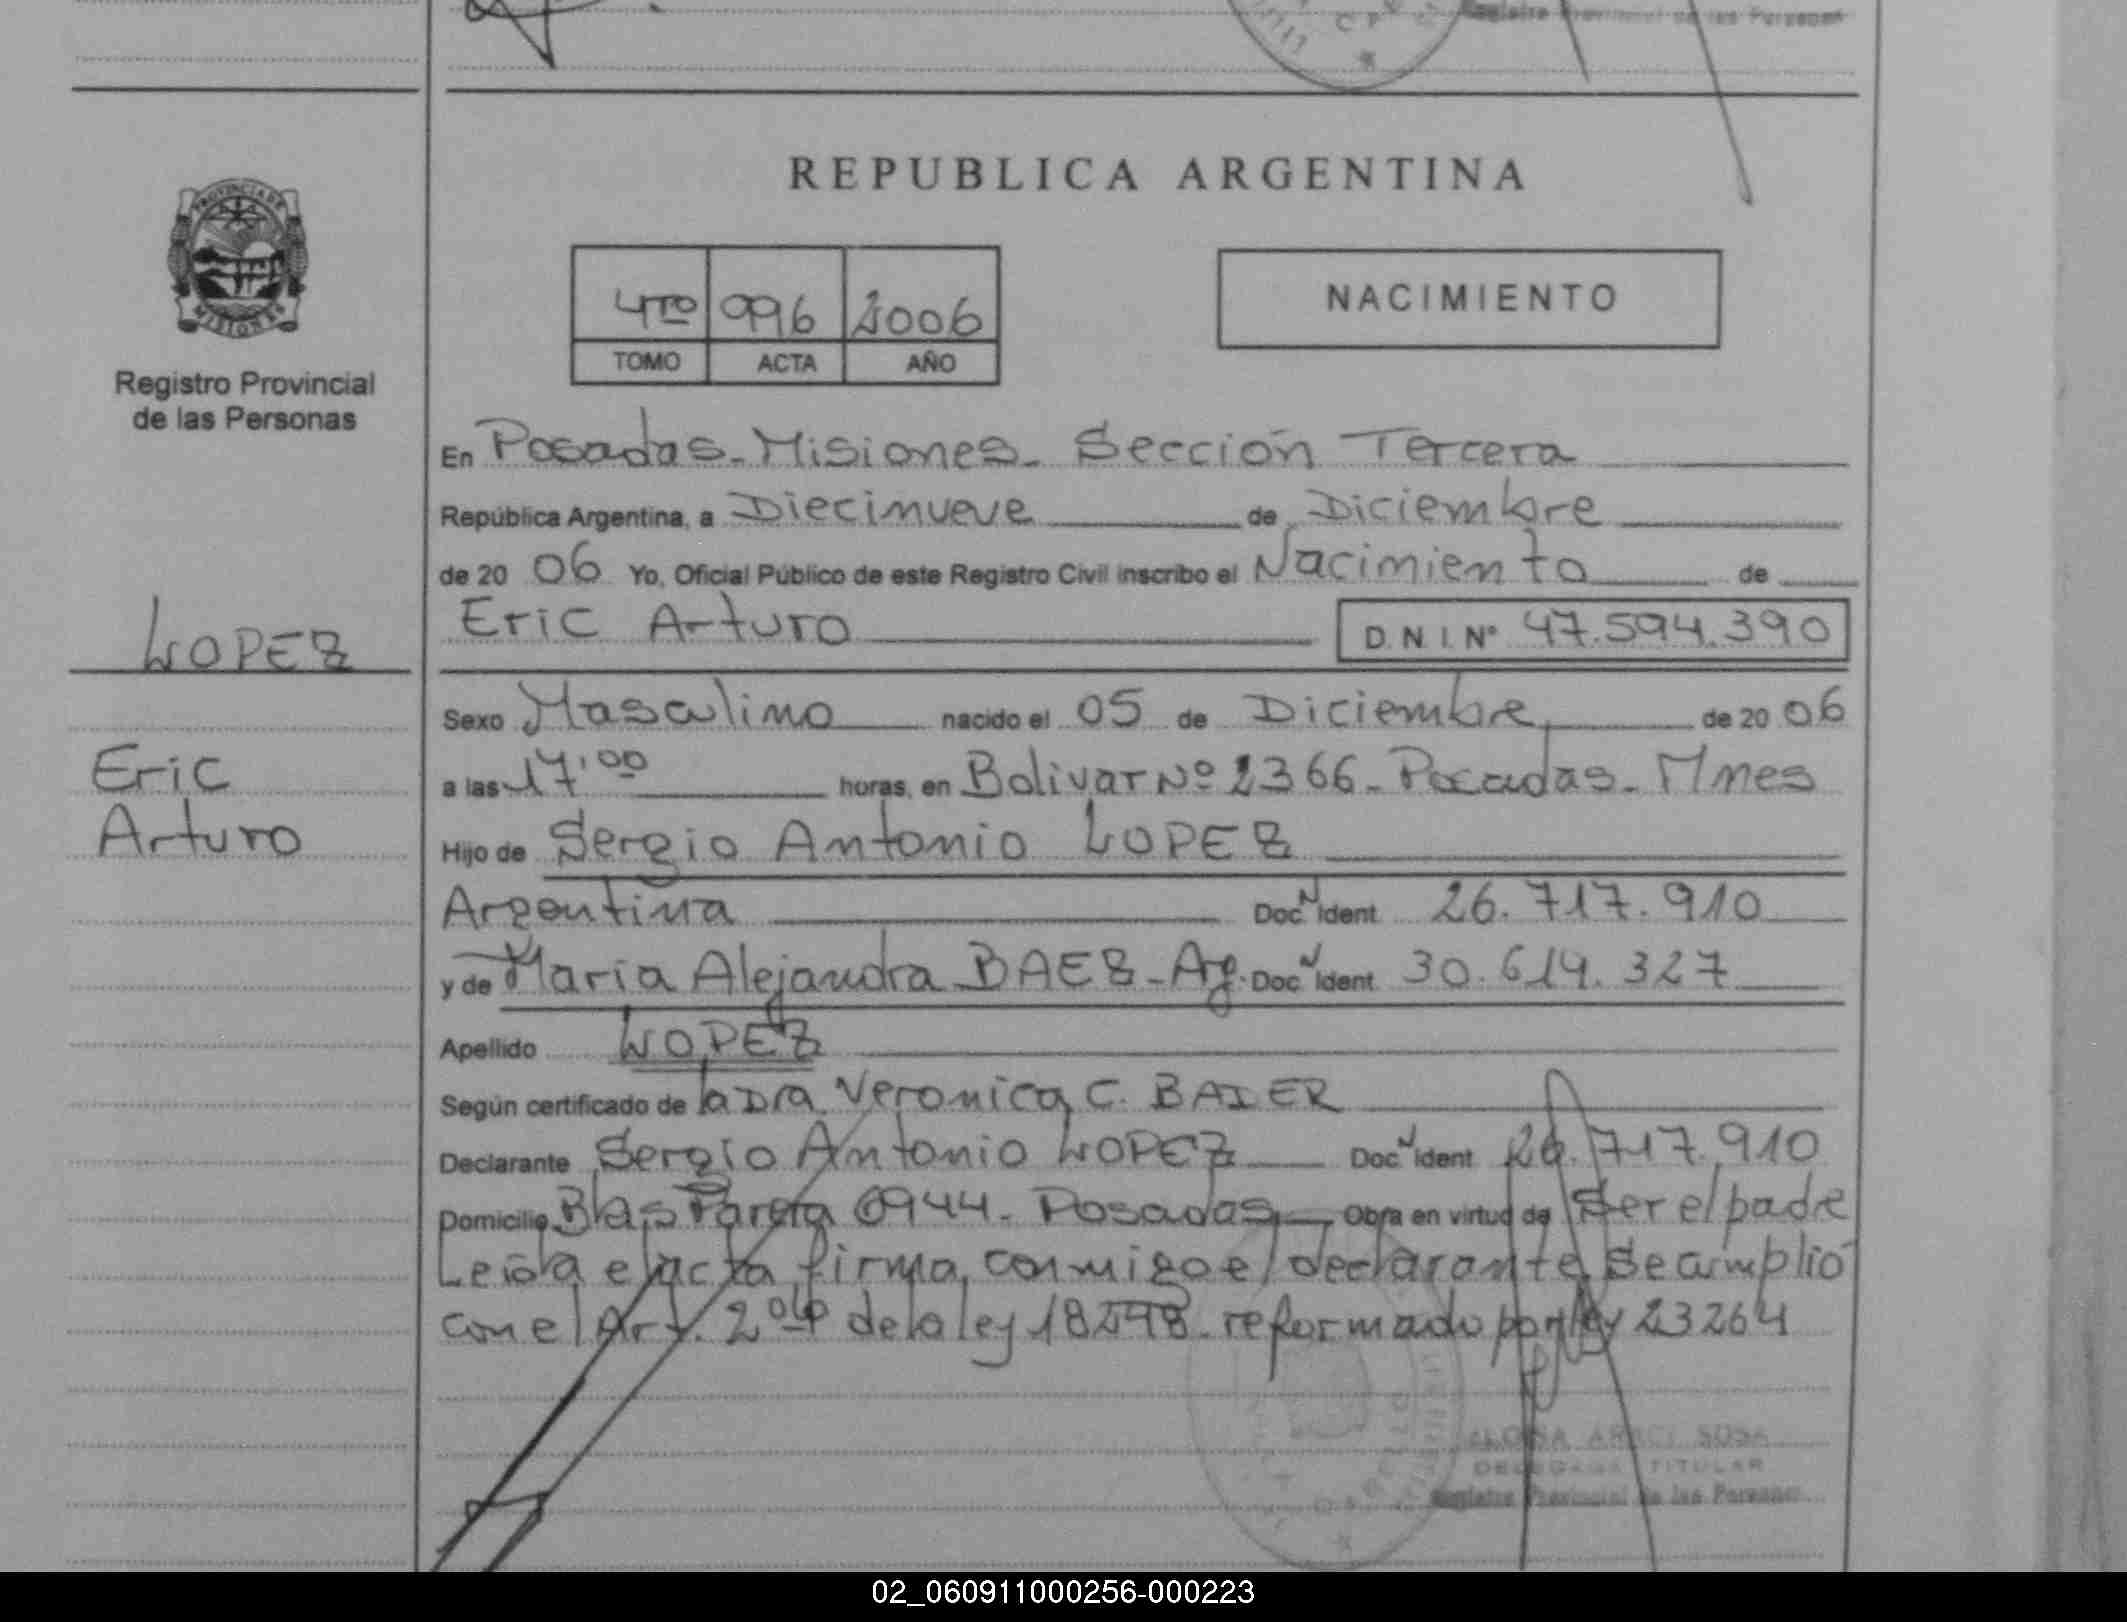 Registro Provincial de las Personas
REPUBLICA ARGENTINA
PROVINCIA DE
MISIONES
4TO 996 2006
TOMO ACTA AÑO
NACIMIENTO
Registro Provincial
de las Personas
En Posadas - Misiones - Sección Tercera
República Argentina, a Diecinueve de Diciembre
de 20 06 Yo, Oficial Público de este Registro Civil inscribo el Nacimiento de
Eric Arturo D.N.I.Nº 47.594.390
LOPEZ
Eric
Arturo
Sexo Masculino nacido el 05 de Diciembre de 20 06
a las 17'00 horas, en Bolivar Nº 2366 - Posadas - Mnes
Hijo de Sergio Antonio LOPEZ
Argentina Doc Ident 26.717.910
y de María Alejandra BAEZ - Arg. Doc Ident 30.619.327
Apellido LOPEZ
Según certificado de la Dra Veronica C. BAIER
Declarante Sergio Antonio LOPEZ Doc Ident 26.717.910
Domicilio Blas Parera 6944 - Posadas Obra en virtud de Ser el padre
Leida el acta firma conmigo el declarante Se cumplió
con el Art. 2º de la ley 18248 reformado por ley 23264
ARACI SOSA
DELEGADA TITULAR
Registro Provincial de las Personas
02_060911000256-000223